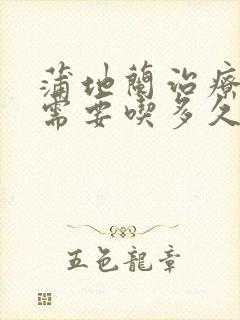 蒲地蘭治療
需要喫多久
五色龍章